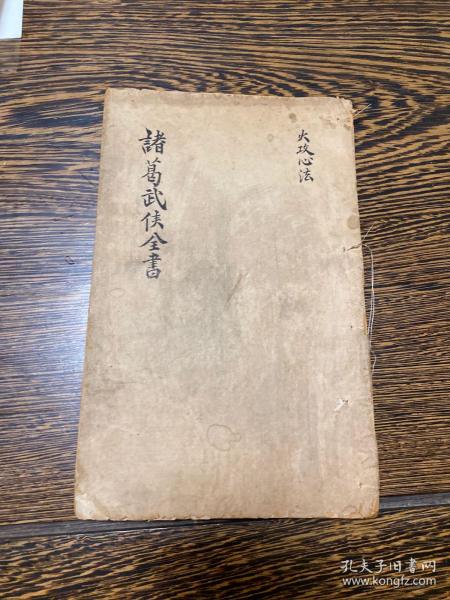 火攻心法
諸葛武侯全書
孔夫子旧书网
www.kongfz.com